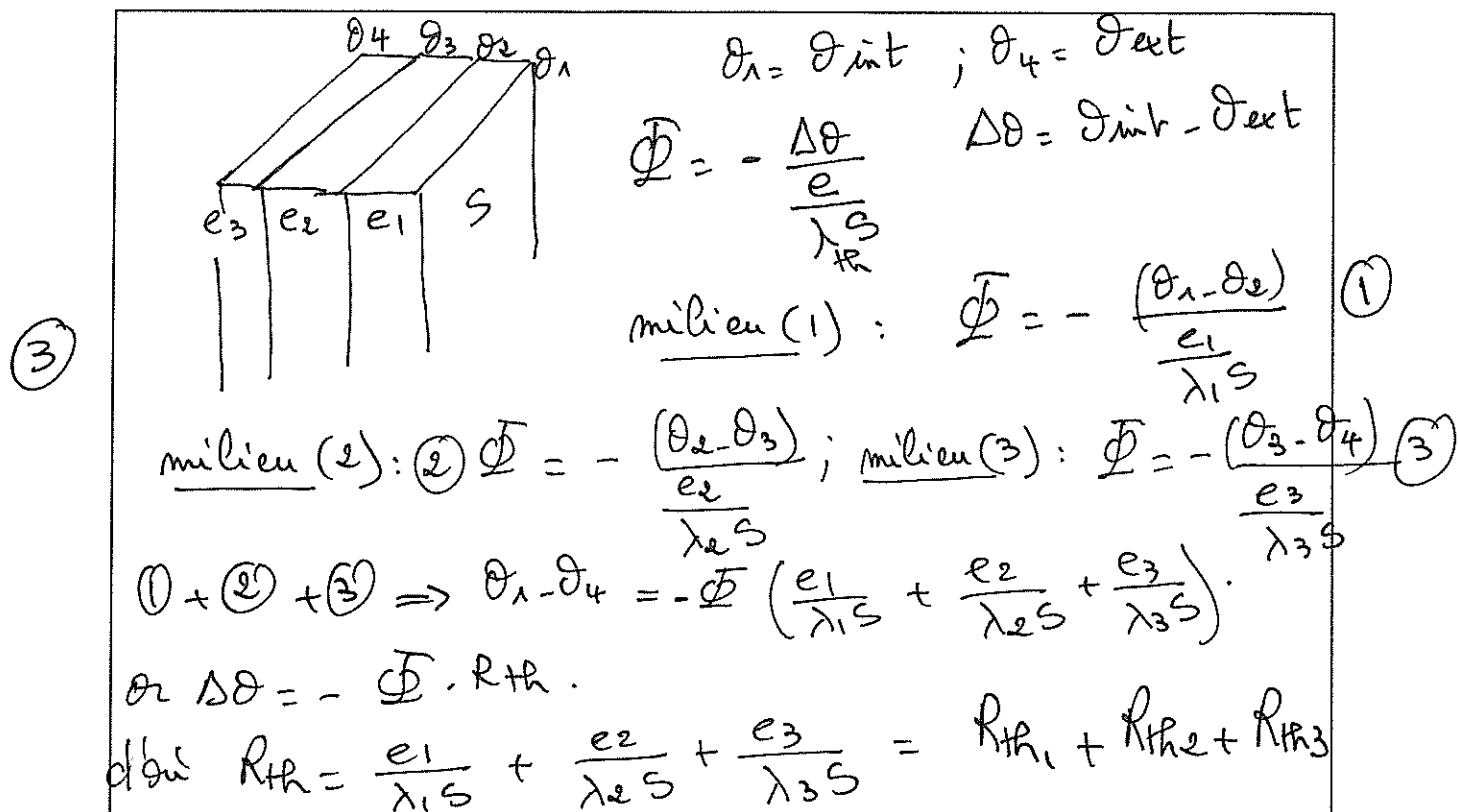 θ4 θ3 θ2 θ1
θ1 = θint ; θ4 = θext
Φ = - Δθ / (e / λth S)
Δθ = θint - θext
e3 e2 e1 S
milieu (1) : Φ = - (θ1 - θ2) / (e1 / λ1 S) ①
③
milieu (2) : ② Φ = - (θ2 - θ3) / (e2 / λ2 S) ; milieu (3) : Φ = - (θ3 - θ4) / (e3 / λ3 S) ③
① + ② + ③ => θ1 - θ4 = - Φ (e1 / λ1 S + e2 / λ2 S + e3 / λ3 S).
or Δθ = - Φ . Rth .
d'où Rth = e1 / λ1 S + e2 / λ2 S + e3 / λ3 S = Rth1 + Rth2 + Rth3